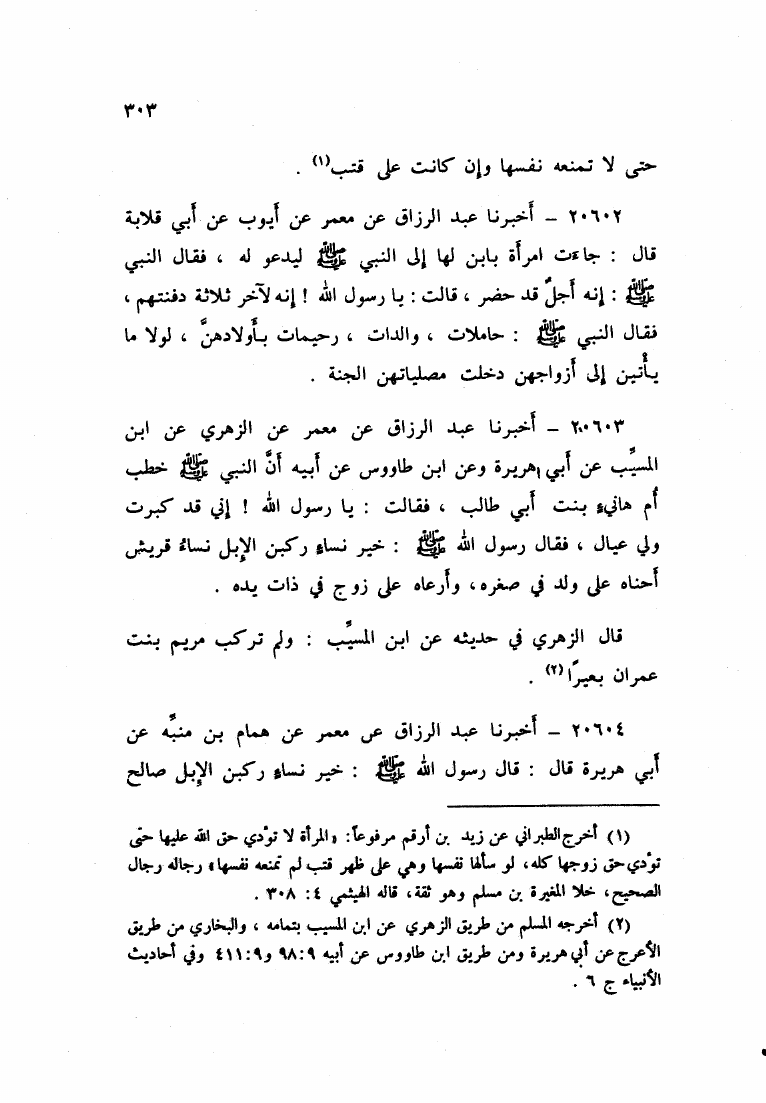 ٣٠٣
حتى لا تمنعه نفسها وإن كانت على قتب(١) .
٢٠٦٠٢ – أخبرنا عبد الرزاق عن معمر عن أيوب عن أبي قلابة
قال : جاءت امرأة بابن لها إلى النبي ﷺ ليدعو له ، فقال النبي
ﷺ : إنه أجلٌ قد حضر ، قالت : يا رسول الله ! إنه لآخر ثلاثة دفنتهم ،
فقال النبي ﷺ : حاملات ، والدات ، رحيمات بأولادهنَّ ، لولا ما
يأتين إلى أزواجهن دخلت مصلياتهن الجنة .
٢٠٦٠٣ – أخبرنا عبد الرزاق عن معمر عن الزهري عن ابن
المسيِّب عن أبي هريرة وعن ابن طاووس عن أبيه أنَّ النبي ﷺ خطب
أم هانيء بنت أبي طالب ، فقالت : يا رسول الله ! إني قد كبرت
ولي عيال ، فقال رسول الله ﷺ : خير نساء ركبن الإبل نساءُ قريش
أحناه على ولد في صغره، وأرعاه على زوج في ذات يده .
قال الزهري في حديثه عن ابن المسيِّب : ولم تركب مريم بنت
عمران بعيرًا(٢) .
٢٠٦٠٤ – أخبرنا عبد الرزاق عن معمر عن همام بن منبِّه عن
أبي هريرة قال : قال رسول الله ﷺ : خير نساء ركبن الإبل صالح
(١) أخرج الطبراني عن زيد بن أرقم مرفوعاً: «المرأة لا تؤدي حق الله عليها حتى
تؤدي حق زوجها كله، لو سألها نفسها وهي على ظهر قتب لم تمنعه نفسها» رجاله رجال
الصحيح، خلا المغيرة بن مسلم وهو ثقة، قاله الهيثمي ٤: ٣٠٨ .
(٢) أخرجه المسلم من طريق الزهري عن ابن المسيب بتمامه ، والبخاري من طريق
الأعرج عن أبي هريرة ومن طريق ابن طاووس عن أبيه ٩: ٩٨ و٩: ٤١١ وفي أحاديث
الأنبياء ج ٦ .